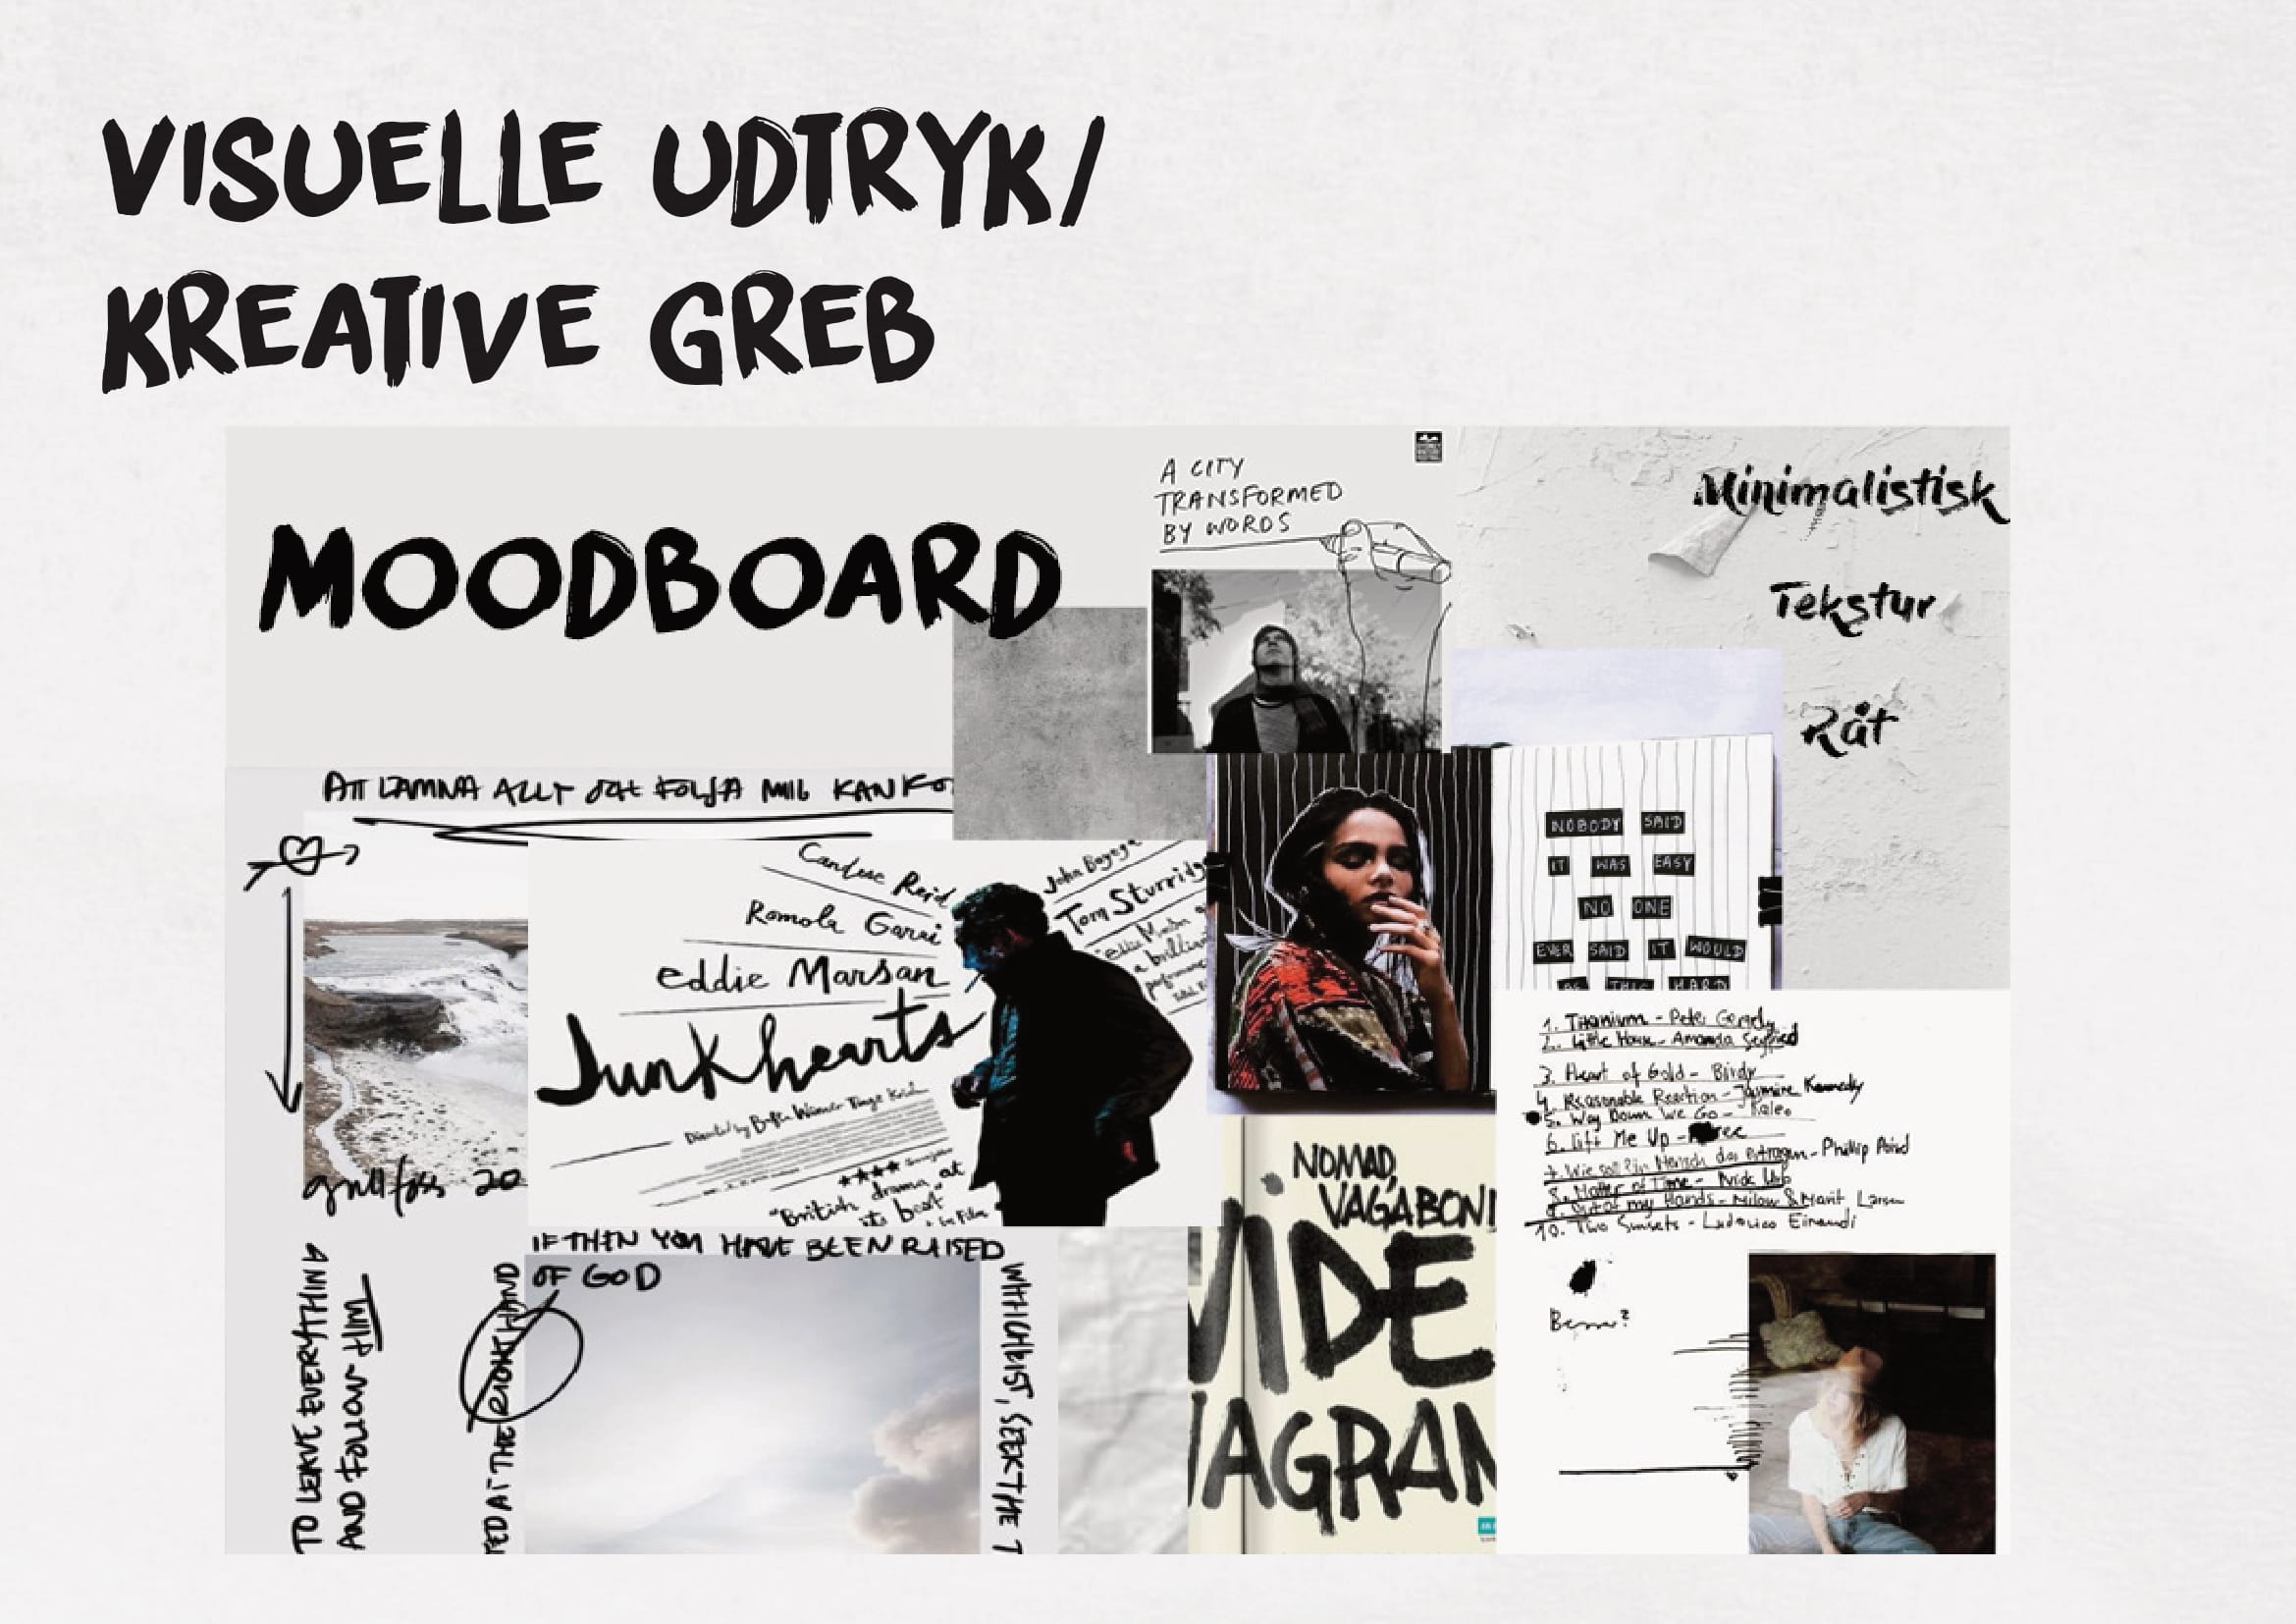 VISUELLE UDTRYK/
KREATIVE GREB
MOODBOARD
A CITY
TRANSFORMED
BY WORDS
Minimalistisk
Tekstur
Råt
ATT LÄMNA ALLT OCH FÖLJA MIG KAN KO
Candese Reid
Romola Garai
eddie Marsan
Junkhearts
John Boyega
Tom Sturridge
Eddie Marsan
a brilliant
performance
Directed by Bafta Winner Tinge Krish
★★★★
"British drama at
its best"
gullfoss 20
NOBODY SAID
IT WAS EASY
NO ONE
EVER SAID IT WOULD
BE THIS HARD
1. Titanium - Peter Gergely
2. Little House - Amanda Seyfried
3. Heart of Gold - Birdy
4. Reasonable Reaction - Jasmine Kennedy
5. Way Down We Go - Kaleo
6. Lift Me Up -
7. Wie soll ein Mensch das ertragen - Phillip Poisel
8. Matter of Time - Nick
9. Out of my Hands - Milow & Marit Larsen
10. Two Sunsets - Ludovico Einaudi
IF THEN YOU HAVE BEEN RAISED
OF GOD
WITH CHRIST, SEEK THE T
TED AT THE RIGHT HAND
TO LEAVE EVERYTHING
AND FOLLOW HIM
NOMAD,
VAGABON
VIDE
AGRAM